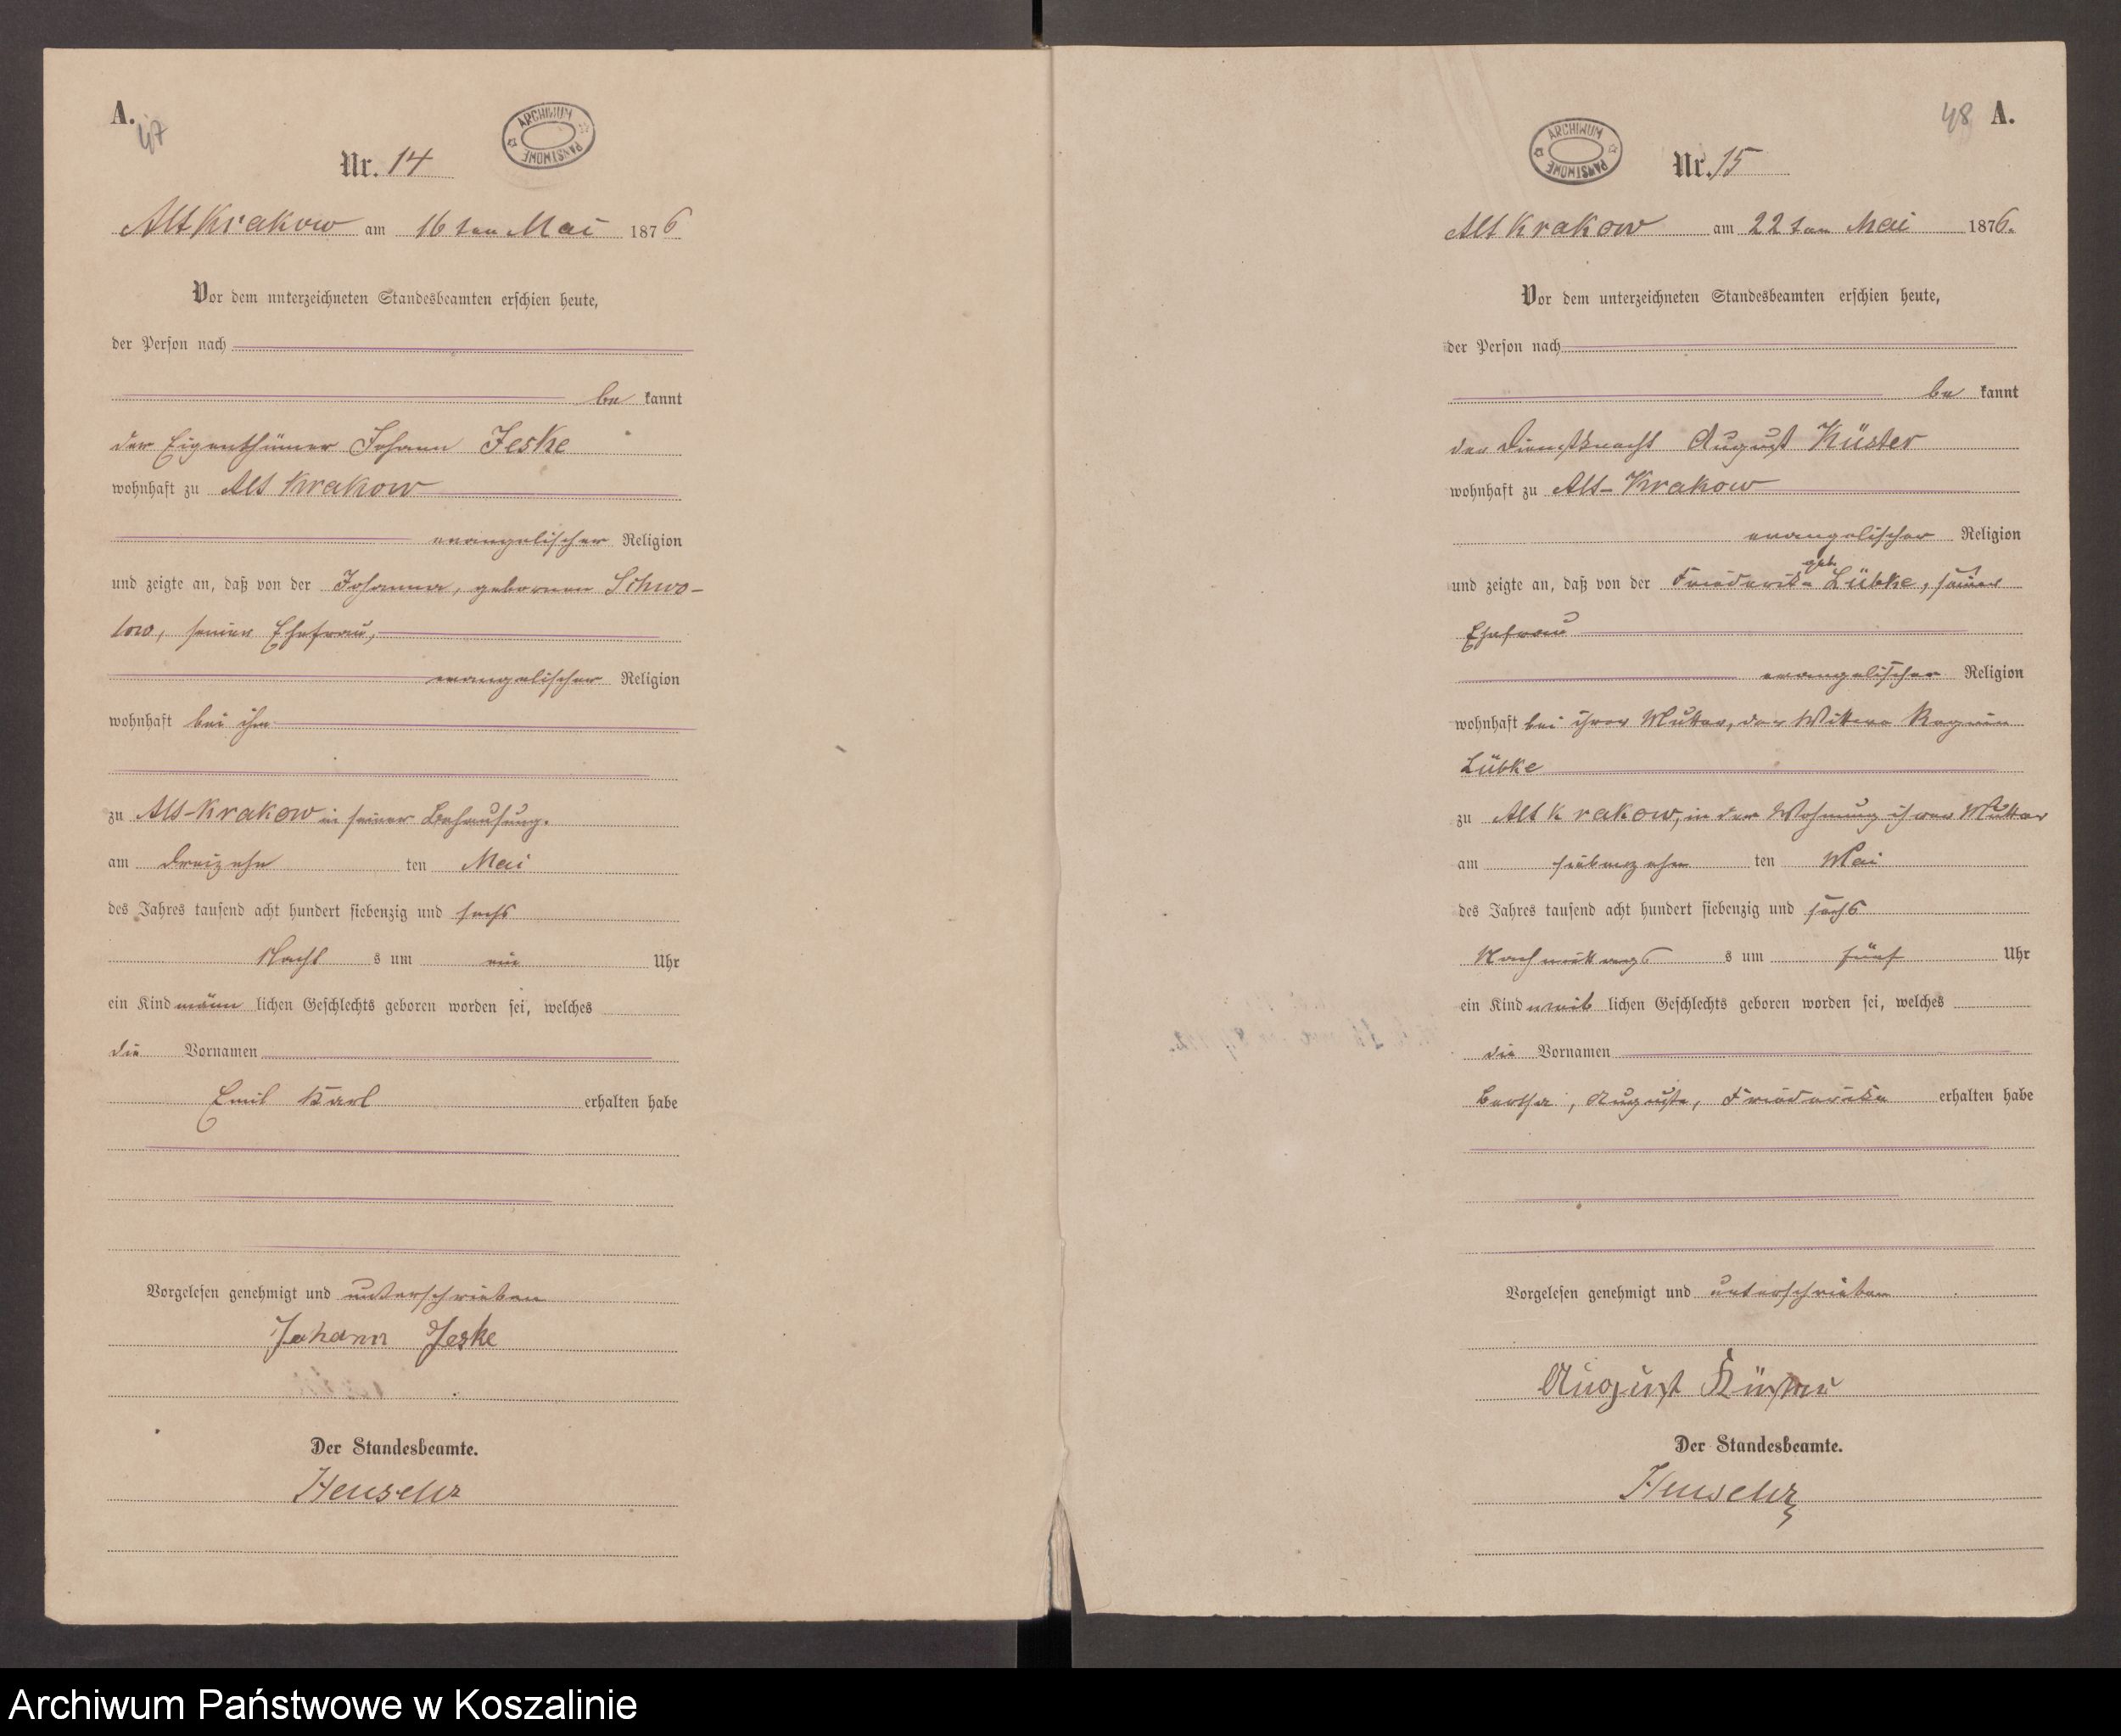 A.
47
ARCHIWUM PAŃSTWOWE
Nr. 14
Alt Krakow am 16ten Mai 1876
Vor dem unterzeichneten Standesbeamten erschien heute,
der Person nach
be kannt
der Eigenthümer Johann Jeske
wohnhaft zu Alt Krakow
evangelischer Religion
und zeigte an, daß von der Johanna, geborenen Schwo-
low, seiner Ehefrau,
evangelischer Religion
wohnhaft bei ihm
zu Alt-Krakow in seiner Behausung.
am dreizehn ten Mai
des Jahres tausend acht hundert siebenzig und sechs
Nacht s um ein Uhr
ein Kind männ lichen Geschlechts geboren worden sei, welches
die Vornamen
Emil Karl erhalten habe
Vorgelesen genehmigt und unterschrieben
Johann Jeske
Der Standesbeamte.
48 A.
ARCHIWUM PAŃSTWOWE
Nr. 15
Alt Krakow am 22ten Mai 1876.
Vor dem unterzeichneten Standesbeamten erschien heute,
der Person nach
be kannt
der Dienstknecht August Küster
wohnhaft zu Alt-Krakow
evangelischer Religion
und zeigte an, daß von der Friederike geb. Lübke, seiner
Ehefrau
evangelischer Religion
wohnhaft bei ihrer Mutter, der Wittwe Regine
Lübke
zu Alt Krakow, in der Wohnung ihrer Mutter
am siebenzehn ten Mai
des Jahres tausend acht hundert siebenzig und sechs
Nachmittags s um fünf Uhr
ein Kind weib lichen Geschlechts geboren worden sei, welches
die Vornamen
Bertha, Auguste, Friederike erhalten habe
Vorgelesen genehmigt und unterschrieben
August Küster
Der Standesbeamte.
Archiwum Państwowe w Koszalinie